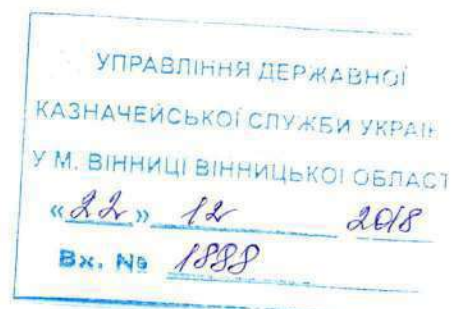 УПРАВЛІННЯ ДЕРЖАВНОЇ
КАЗНАЧЕЙСЬКОЇ СЛУЖБИ УКРАЇН
У М. ВІННИЦІ ВІННИЦЬКОЇ ОБЛАСТ
«22» 12 2018
Вх. № 1888